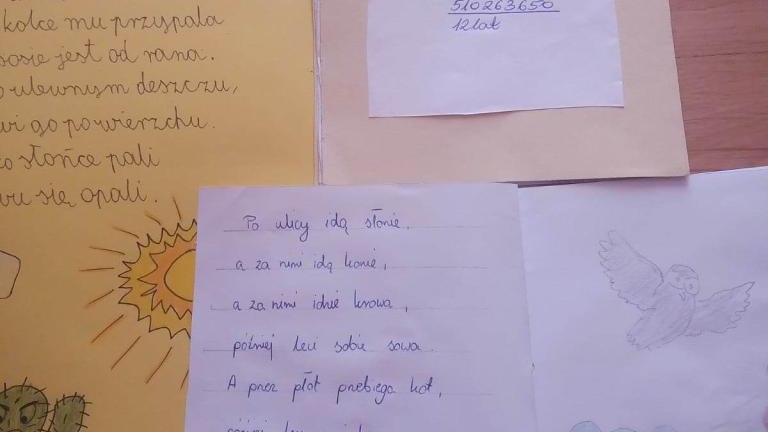 kolce mu przypala
osie jest od rana.
ulewnym deszczu,
go powierzchu.
słońce pali
się opali.
510263650
12 lat
Po ulicy idą słonie,
a za nimi idą konie,
a za nimi idzie krowa,
później leci sobie sowa.
A przez płot przebiega kot,